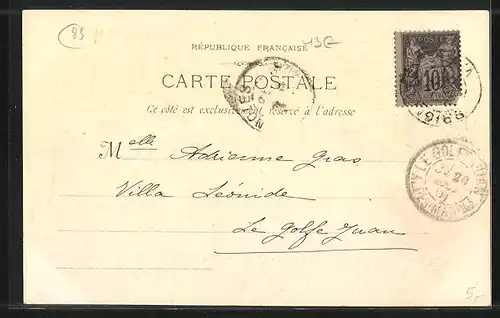 83
13€
RÉPUBLIQUE FRANÇAISE
CARTE POSTALE
Ce côté est exclusivement réservé à l'adresse
10
Melle Adrienne Gras
Villa Léonide
Le Golfe Juan
LE GOLFE JUAN
20
5,-